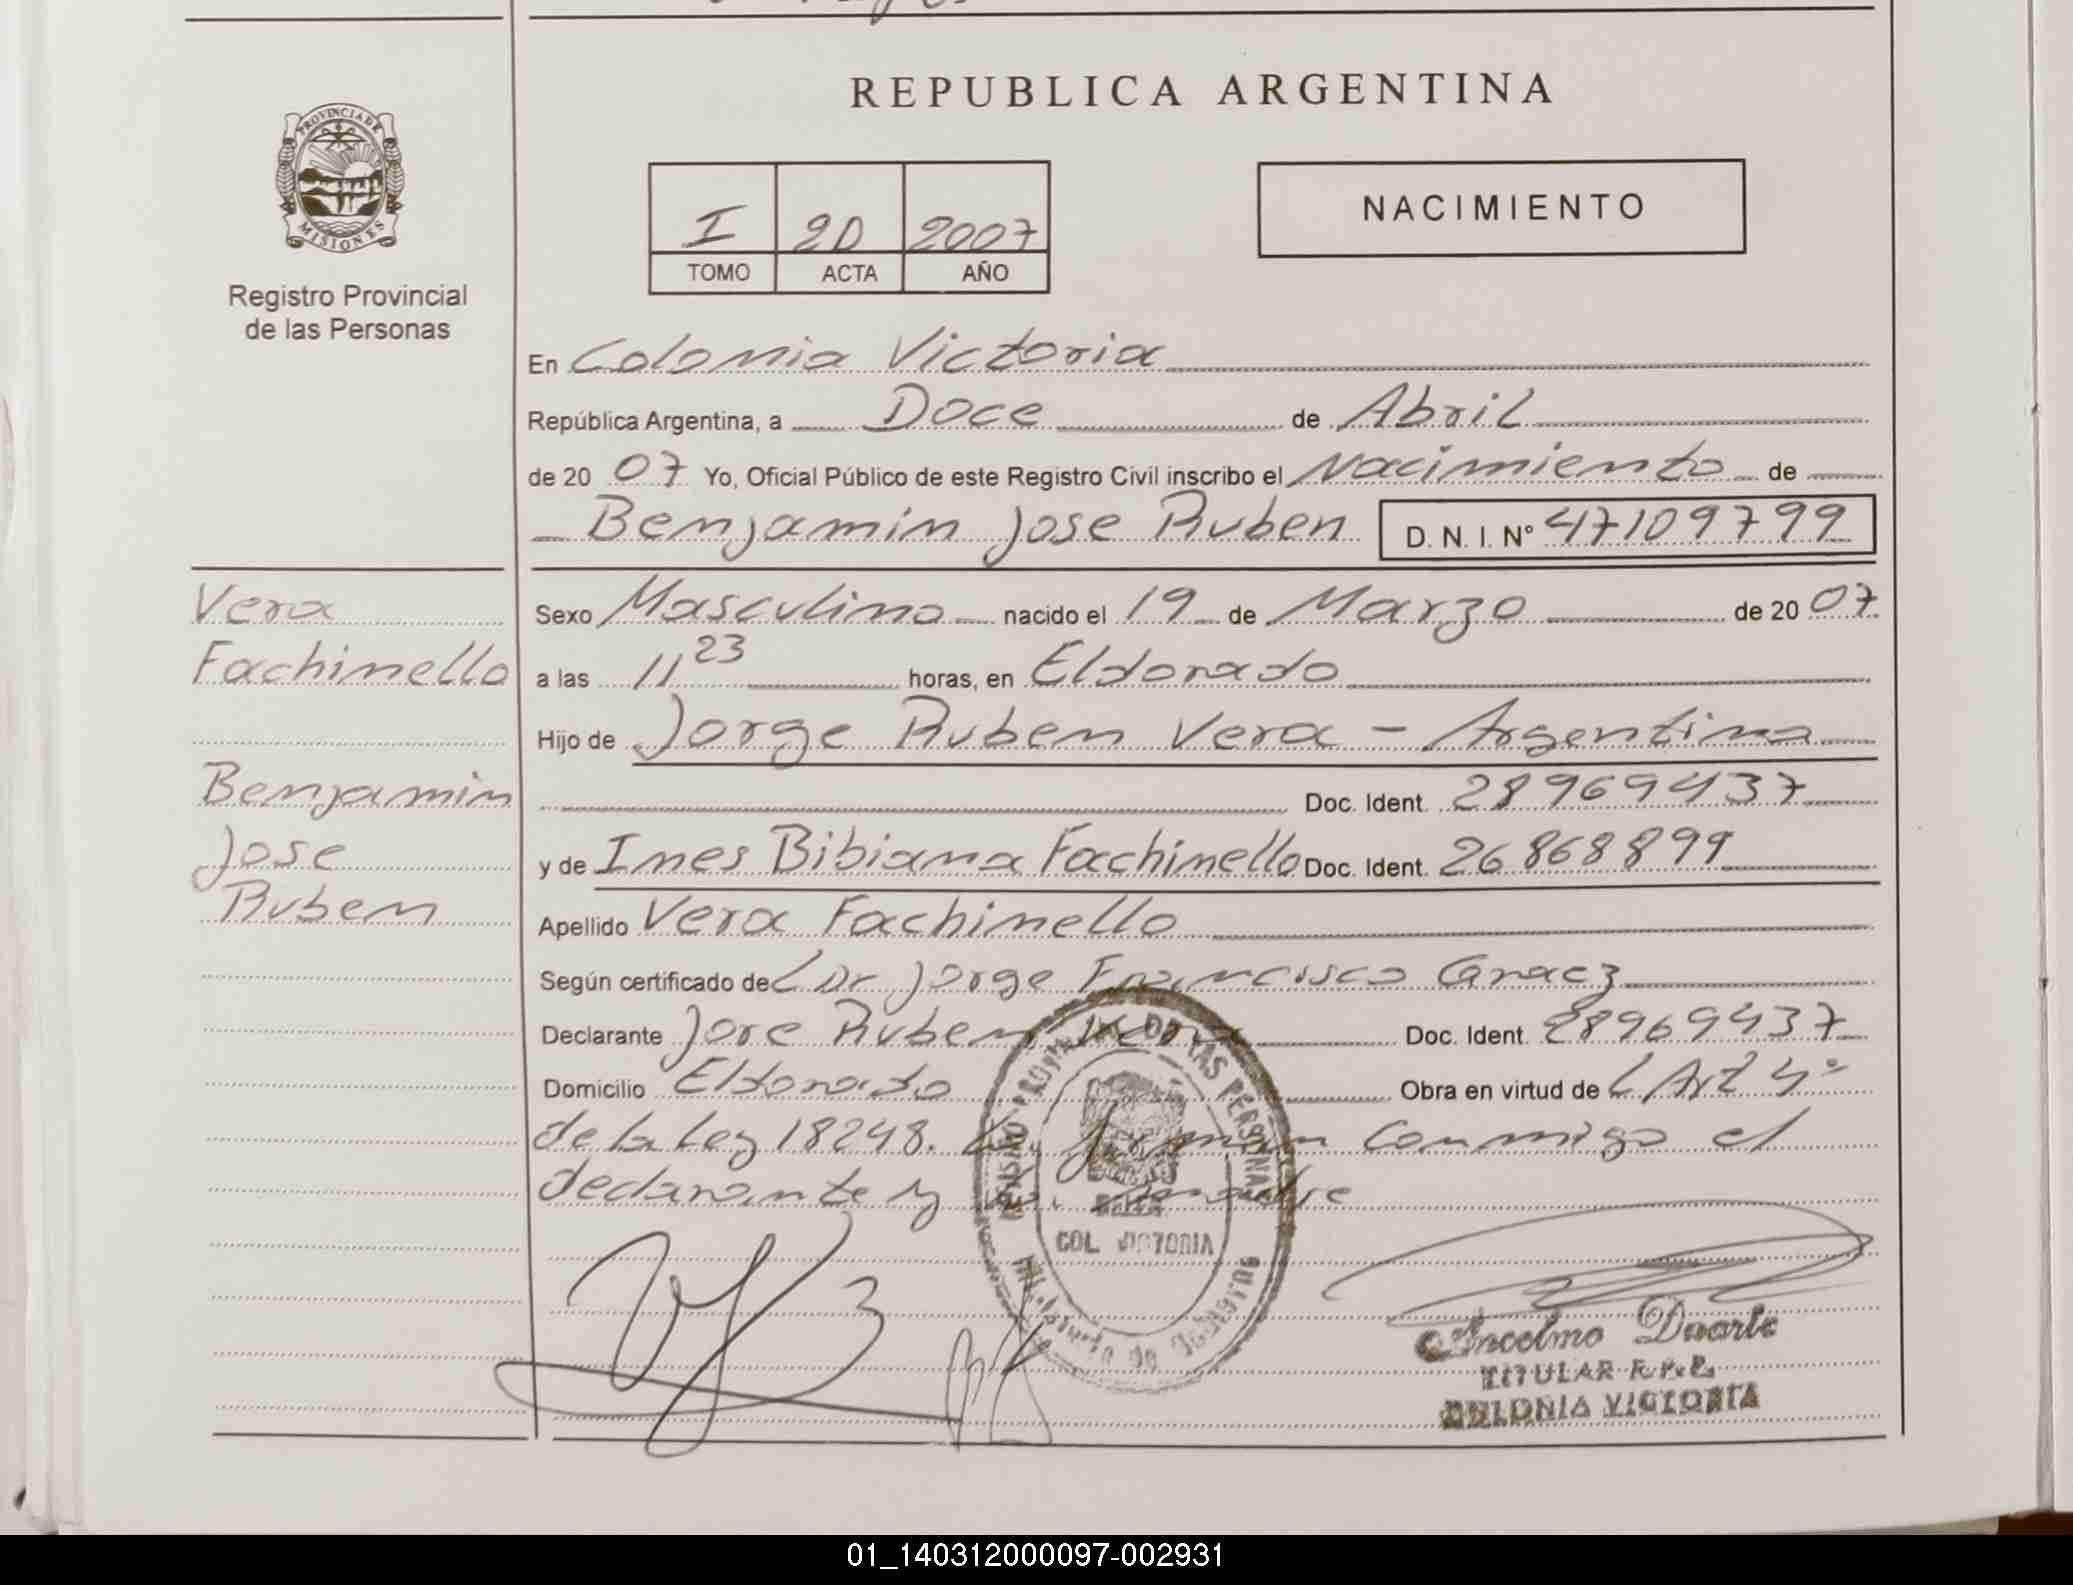 REPUBLICA ARGENTINA
PROVINCIA DE MISIONES
Registro Provincial
de las Personas
I 20 2007
TOMO ACTA AÑO
NACIMIENTO
En Colonia Victoria
República Argentina, a Doce de Abril
de 20 07 Yo, Oficial Público de este Registro Civil inscribo el Nacimiento de
Benjamin Jose Ruben D. N. I. N° 47109799
Vera
Fachinello
Benjamin
Jose
Ruben
Sexo Masculino nacido el 19 de Marzo de 20 07
a las 11 23 horas, en Eldorado
Hijo de Jorge Ruben Vera - Argentina
Doc. Ident. 28969437
y de Ines Bibiana Fachinello Doc. Ident. 26868899
Apellido Vera Fachinello
Según certificado de L Dr Jorge Francisco
Declarante Jore Ruben Vera Doc. Ident. 28969437
Domicilio Eldorado Obra en virtud de L Art 4°
de la Ley 18248. firman conmigo el
declarante y
COL VICTORIA
Ancelmo Duarte
TITULAR R.P.P.
COLONIA VICTORIA
01_140312000097-002931